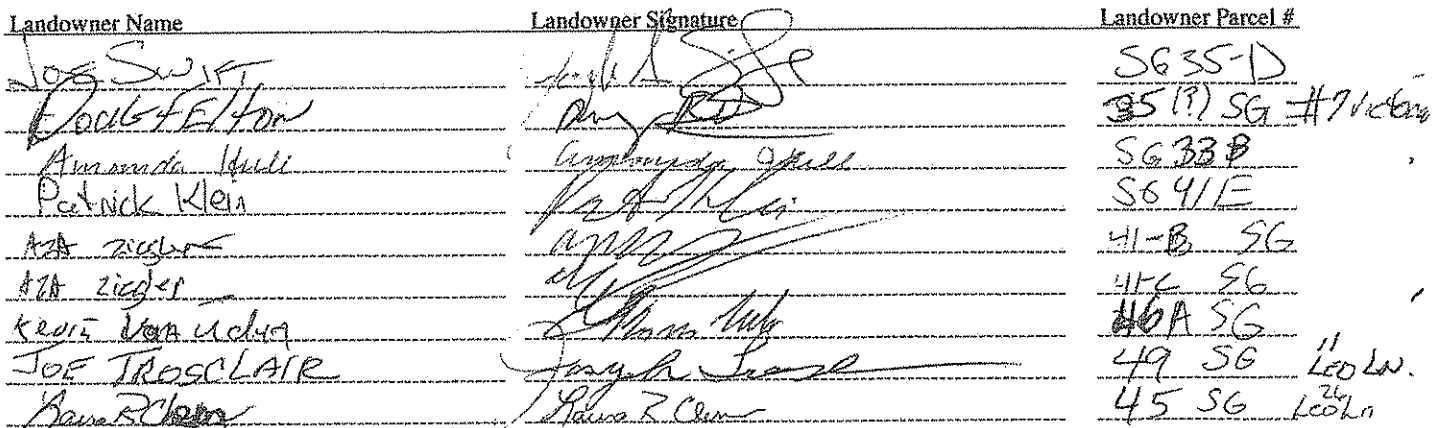 Landowner Name Landowner Signature Landowner Parcel #
Joe Swift SG 35-D
Doug Felton 35 (?) SG #7 Victoria
Amanda Hull Amanda Hull SG 33 B
Patrick Klein SG 41E
AZA Ziegler 41-B SG
AZA Ziegler 41-C SG
Kevin 46A SG
JOE TROSCLAIR Joseph 49 SG 11 Leo LN.
Laura R Laura R 45 SG 26 Leo Ln